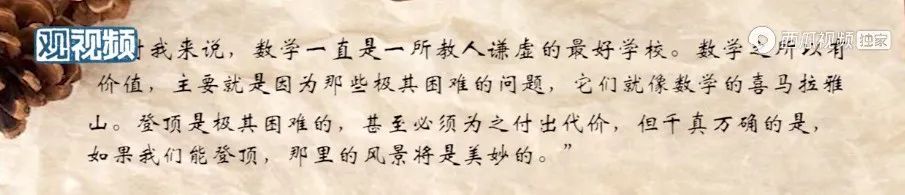 观视频
西瓜视频 独家
我来说，数学一直是一所教人谦虚的最好学校。数学之所以有
价值，主要就是因为那些极其困难的问题，它们就像数学的喜马拉雅
山。登顶是极其困难的，甚至必须为之付出代价，但千真万确的是，
如果我们能登顶，那里的风景将是美妙的。”